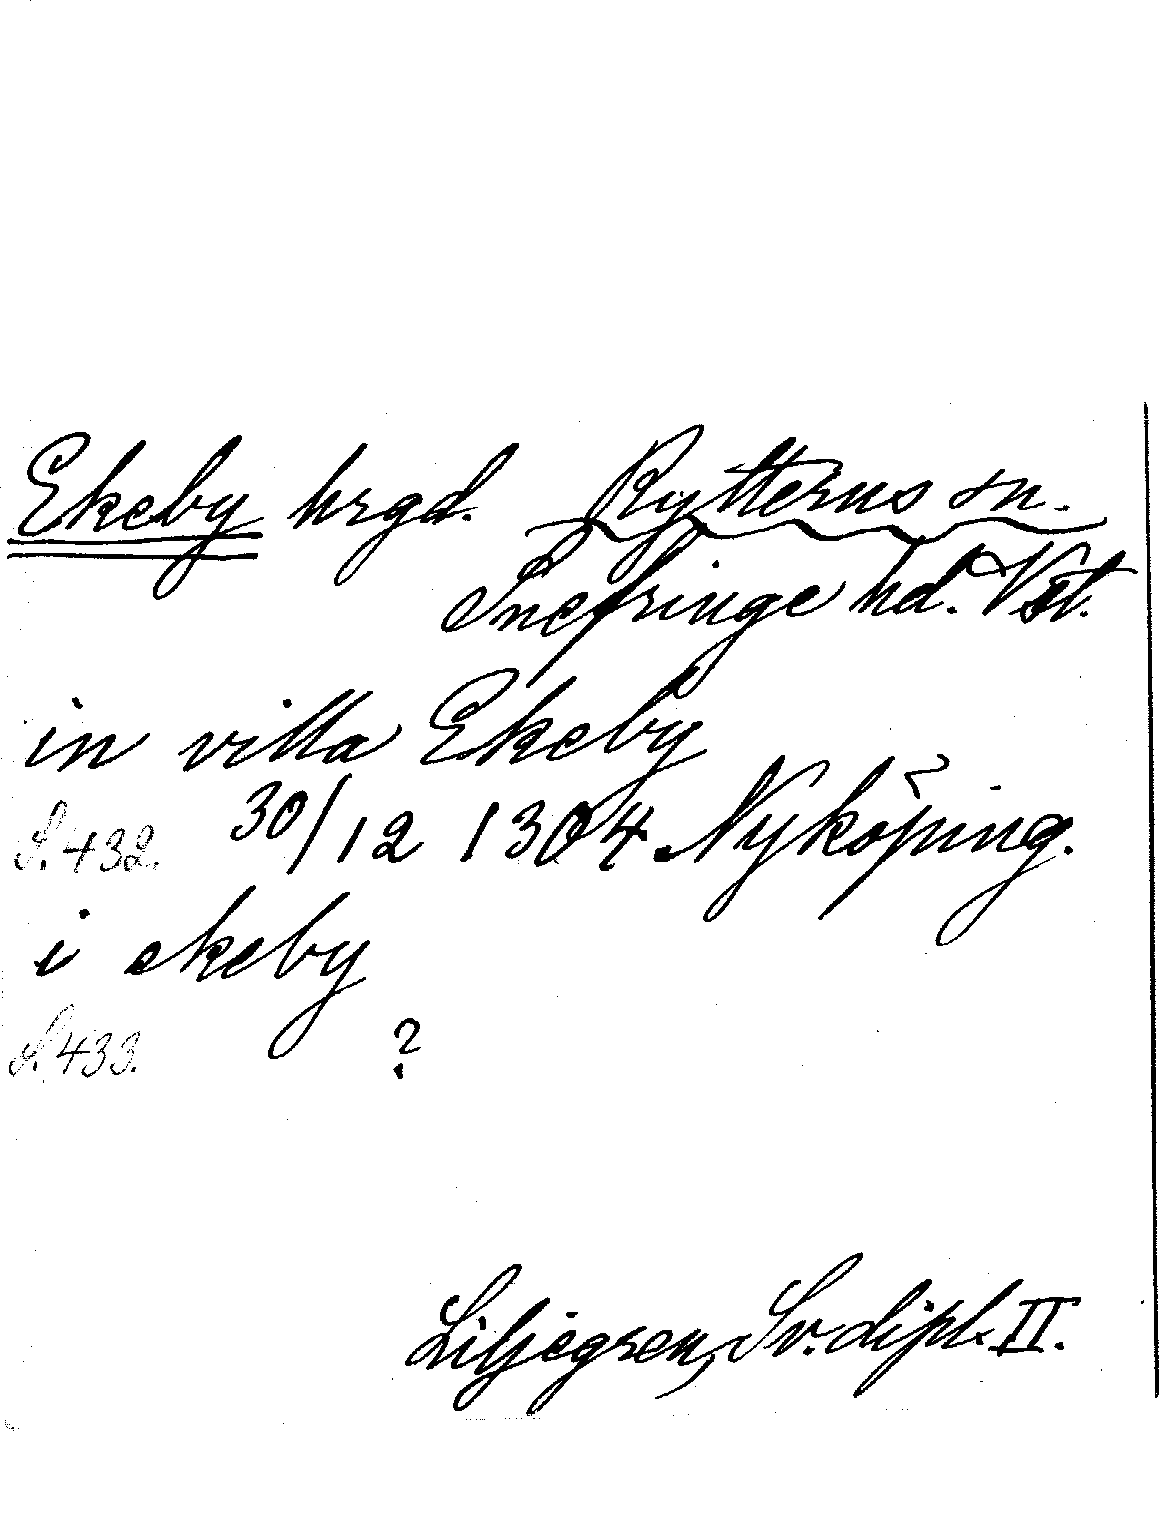 Ekeby hrgd. Rytterns sn.
Snefringe hd. Vstl.
in villa Ekeby
S. 432. 30/12 1304. Nyköping.
i ekeby
S. 433. ?
Liljegren, Sv. dipl. II.